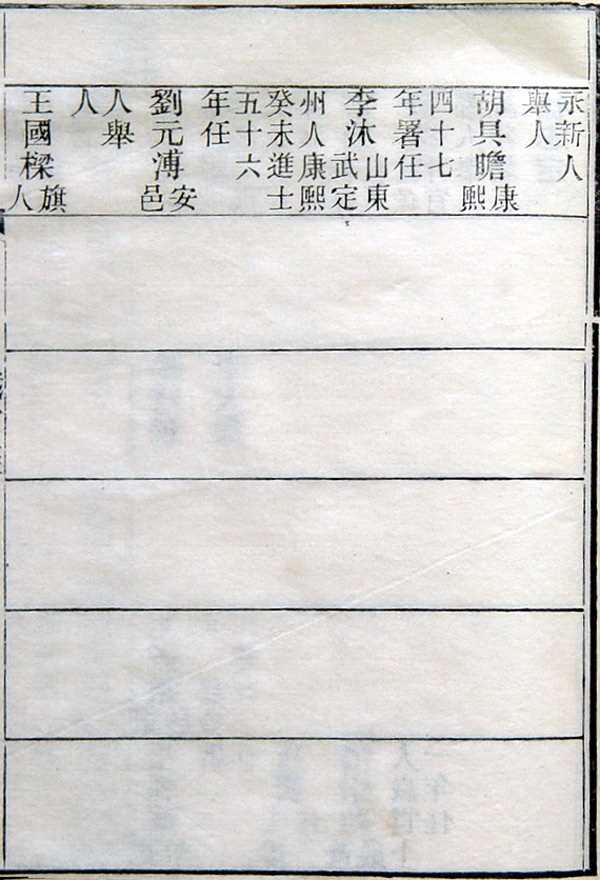 永新人
舉人
胡具瞻康熙
四十七
年署任
李沐山東武定
州人康熙
癸未進士
五十六
年任
劉元溥安邑
人舉
人
王國樑旗人